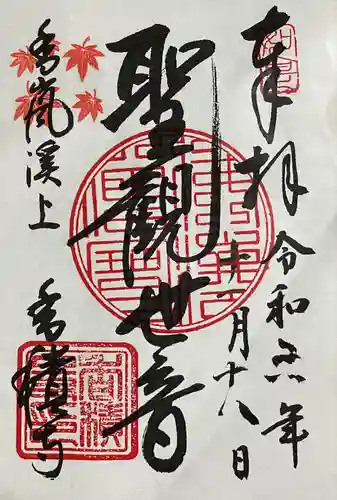 奉拝
令和年
十一月十八日
聖觀世音
香嵐溪上
香積寺